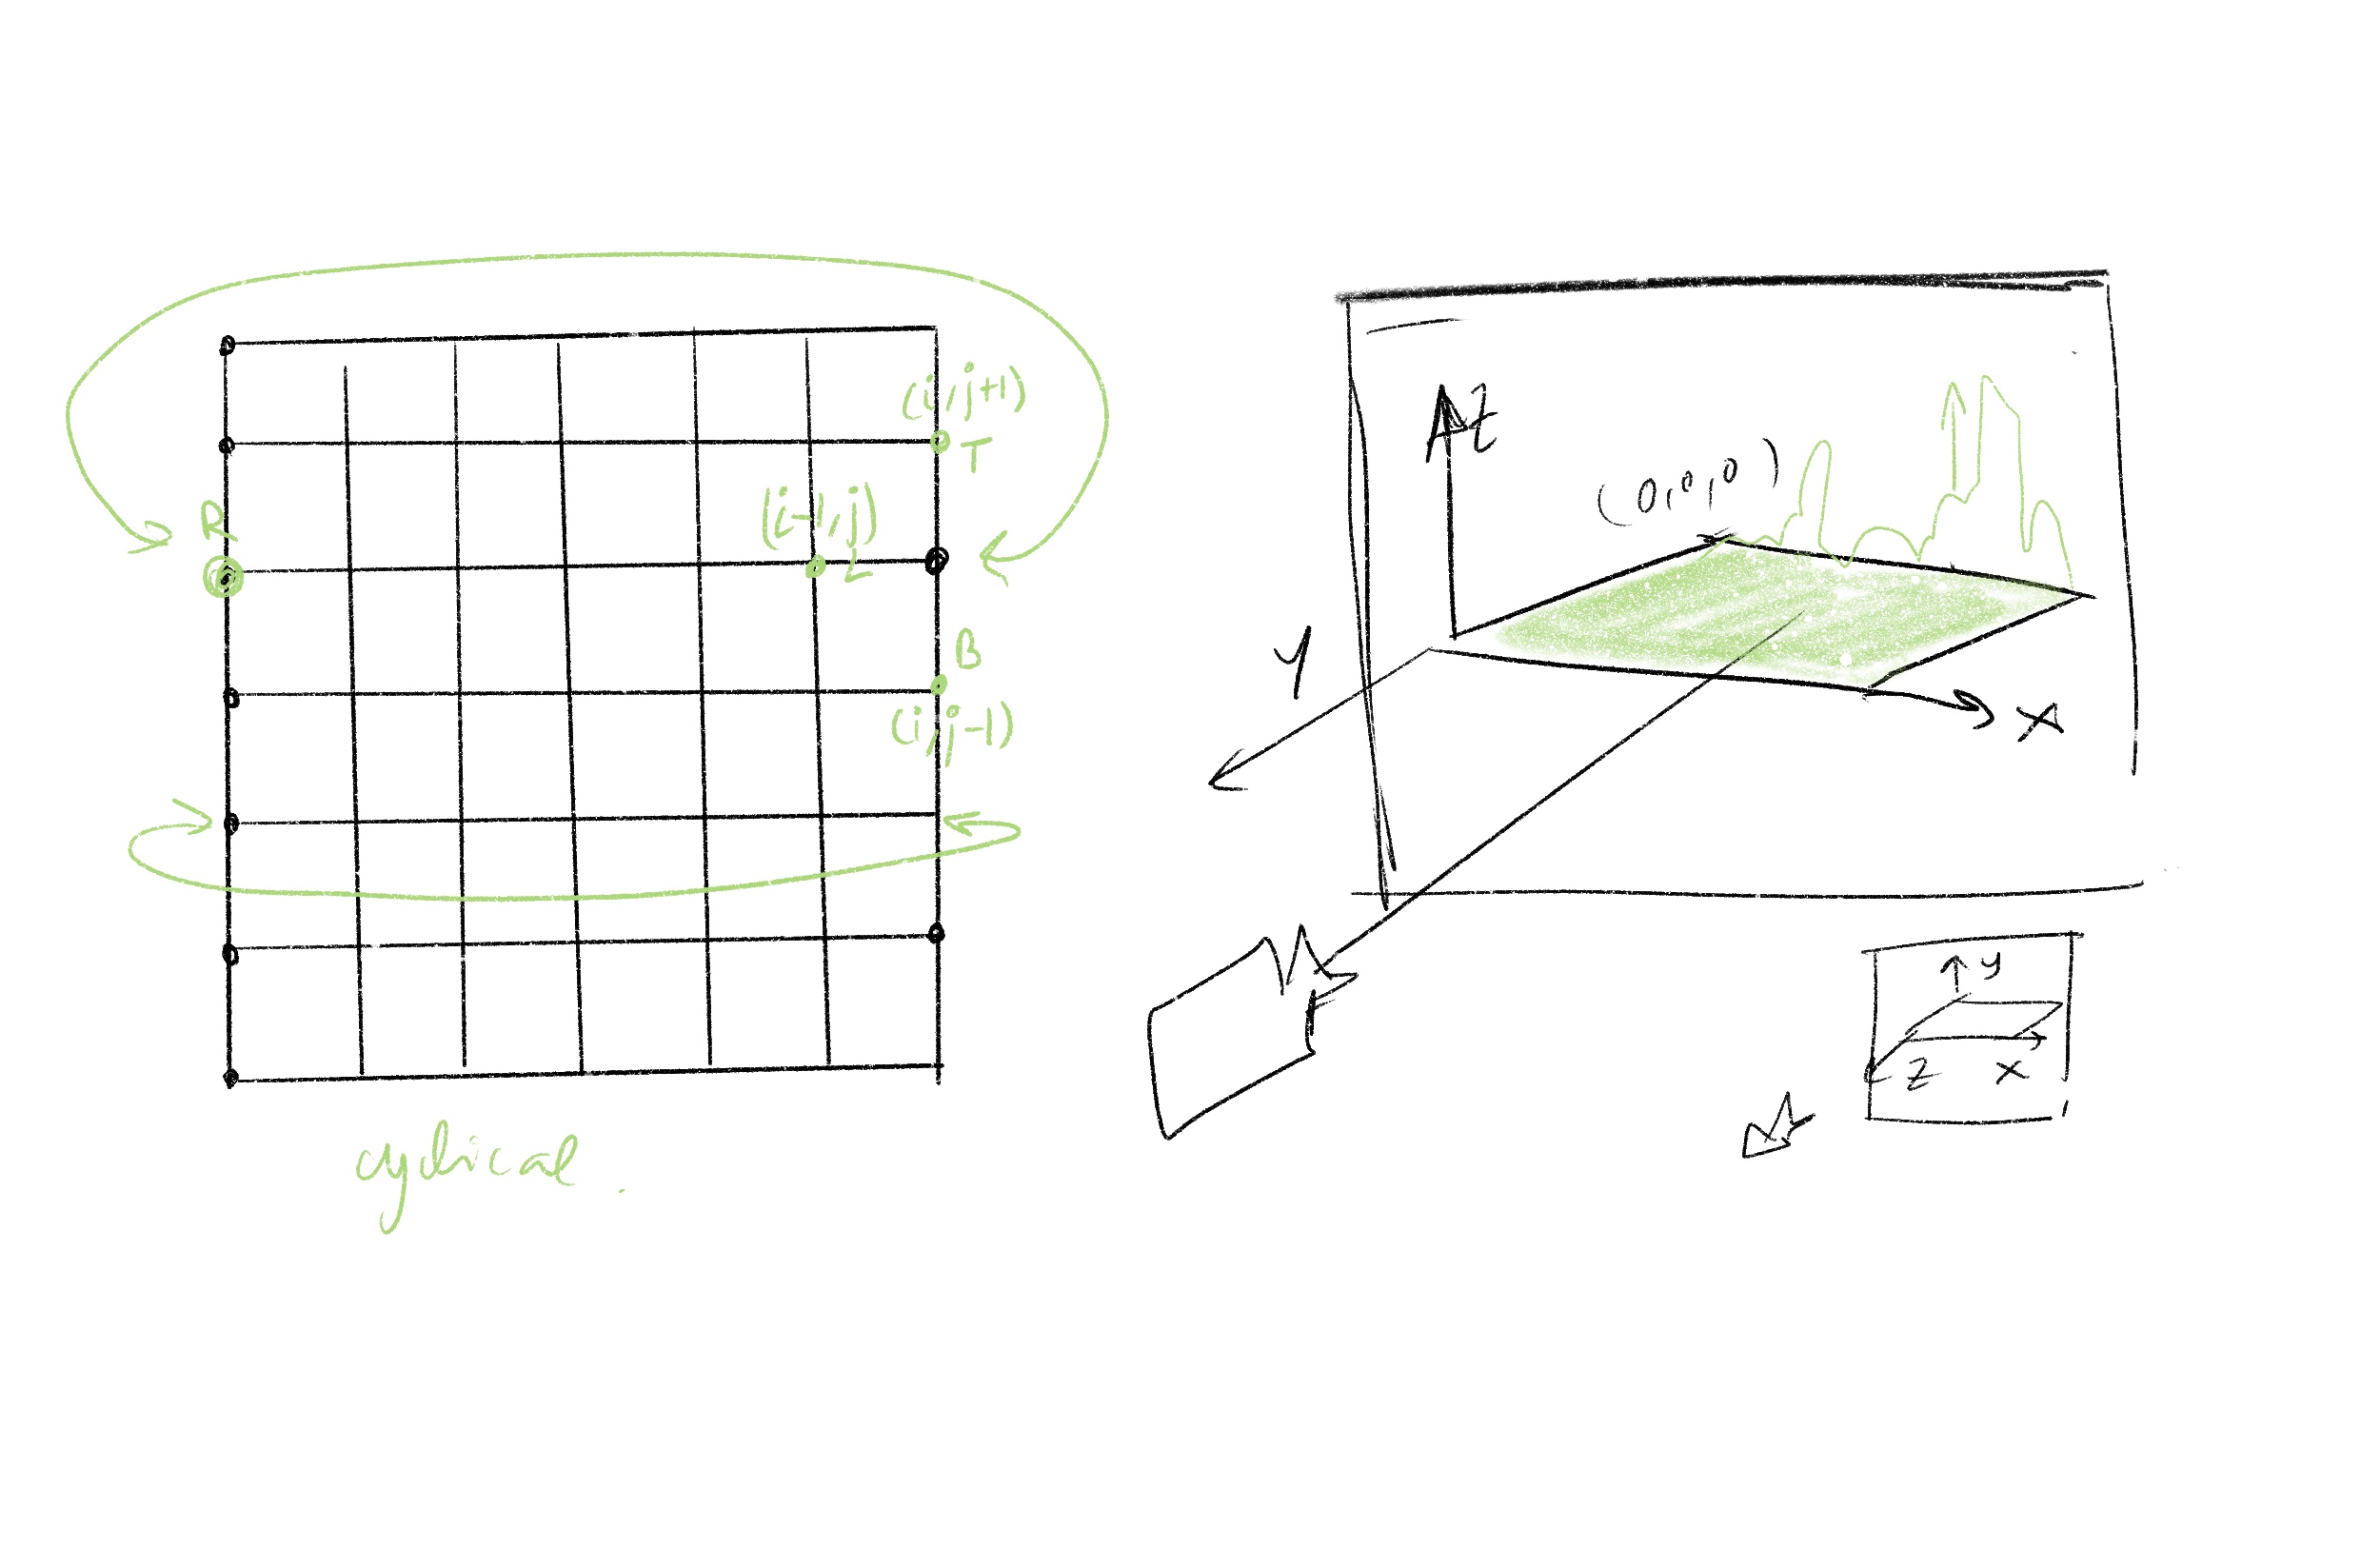 (i, j+1)
T
R
(i-1, j)
L
B
(i, j-1)
cyclical.
Z
(0, 0, 0)
Y
X
y
Z
X